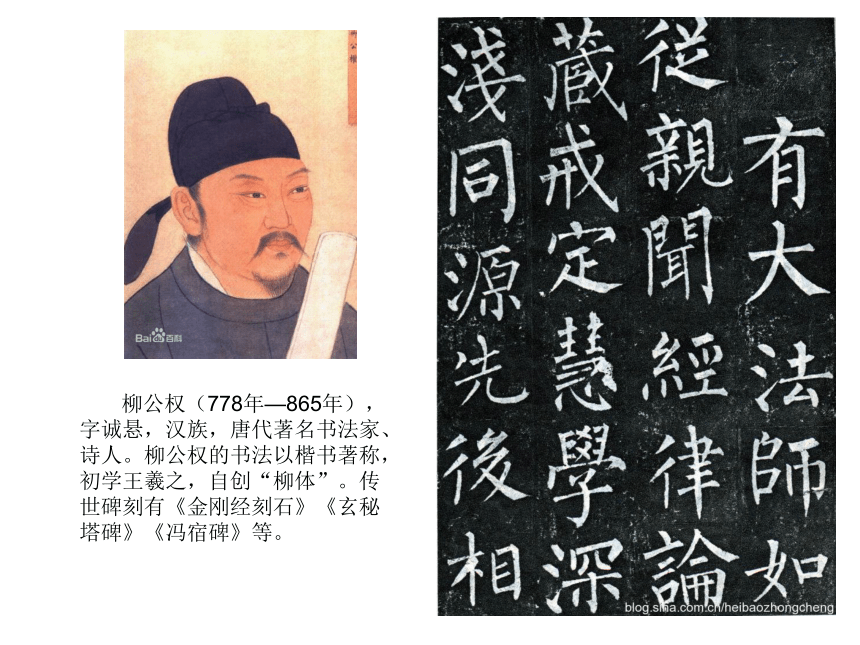 柳公權
Bai百科
柳公权（778年—865年），
字诚悬，汉族，唐代著名书法家、
诗人。柳公权的书法以楷书著称，
初学王羲之，自创“柳体”。传
世碑刻有《金刚经刻石》《玄秘
塔碑》《冯宿碑》等。
有大法師如
從親聞經律論
藏戒定慧學深
淺同源先後相
blog.sina.com.cn/heibaozhongcheng